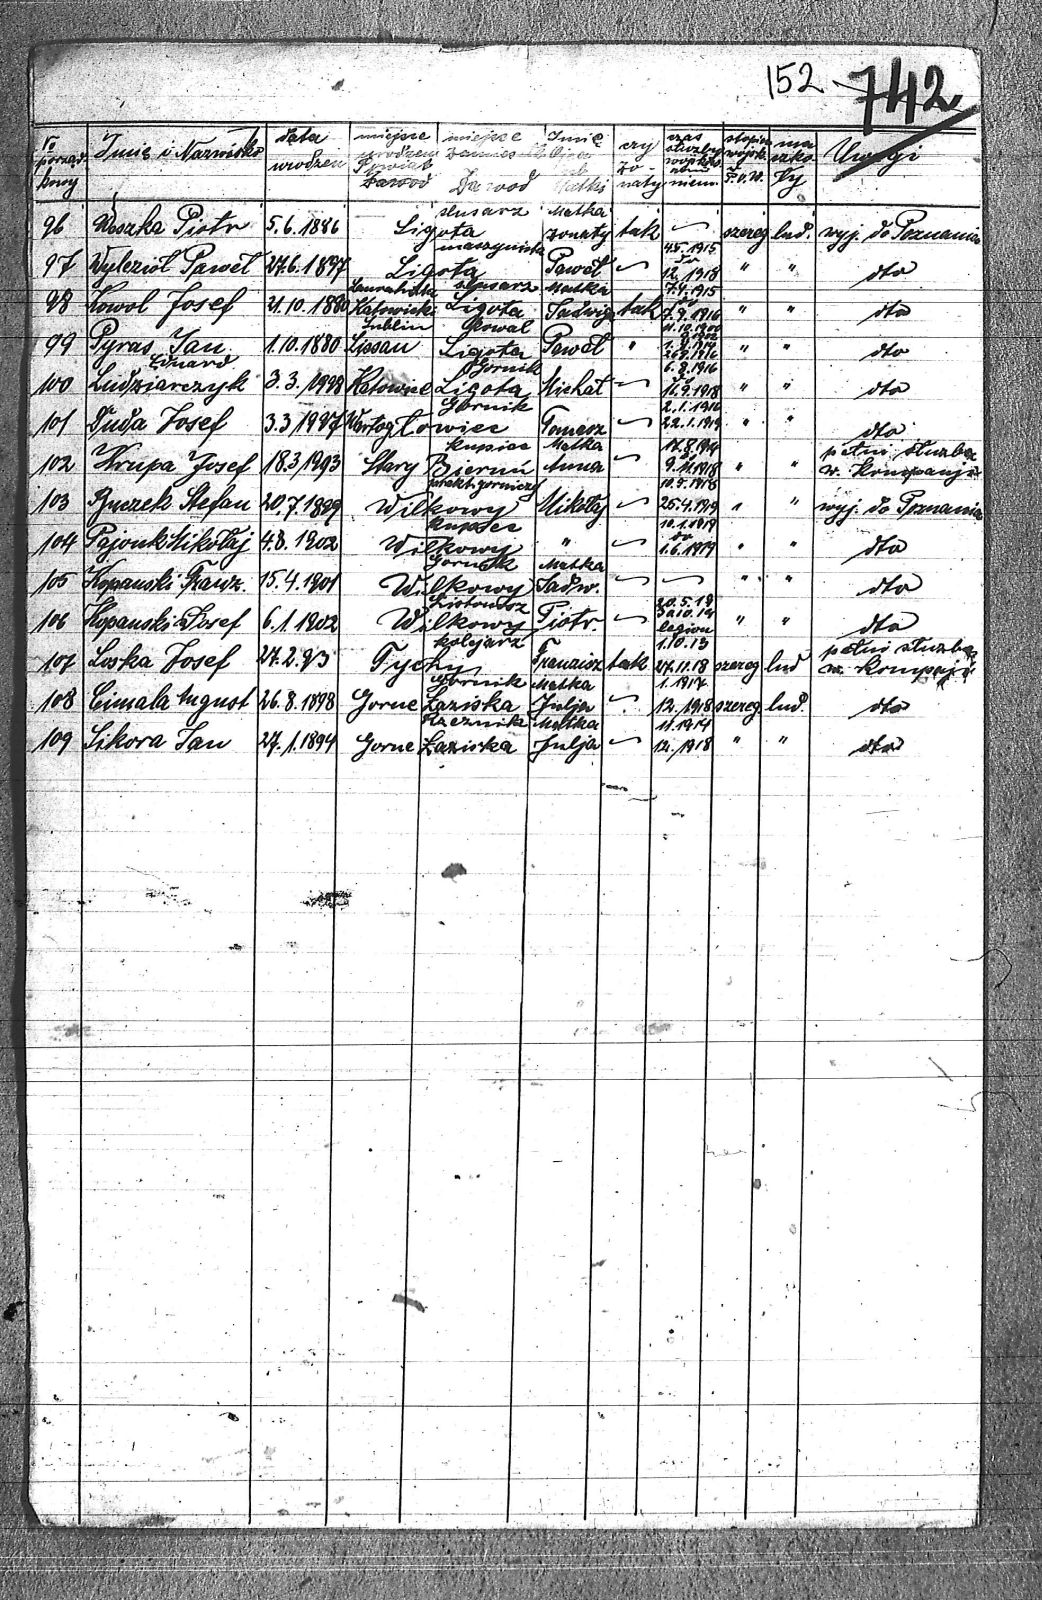 152 742
To porząd kowy | Imię i Nazwisko | data urodzen | miejsce urodzen Powiat Zawod | miejsce Zamies Zawod | Imię Ojca Matki | czy żo naty | czas służby wojsko niem | stopien wojsk | ma szko ły | Uwagi
96 Piotr 5.6.1886 Ligota slusarz Matka żonaty tak — szereg lud. wyj. do Poznania
97 Wylezioł Paweł 27.6.1897 Ligota maszynista Paweł — 4.5.1915 do 12.1918 " " dto
98 Kowol Josef 21.10.1880 Katowicki Ligota slusarz Matka Jadwig tak 7.4.1915 do 7.9.1916 " " dto
99 Pyras Jan 1.10.1880 Lublin Lissau Kowal Ligota Paweł " " " dto
Eduard
100 Ludziarczyk 3.3.1898 Katowice Górnik Ligota Michał — 6.8.1916 do " " dto
101 Duda Josef 3.3.1897 Wartogłowiec Górnik Tomasz — 2.1.1916 22.1.1919 " " dto
102 Krupa Josef 18.3.1893 Stary Bieruń kupiec Matka Anna — 17.8.1914 do 9.11.1918 " " pełni służbę w kompanji
103 Stefan 20.7.1899 Wilkowy prakt. gorniczy Mikołaj — 10.9.1918 25.4.1919 " " wyj. do Poznania
104 Pajonk Mikołaj 4.8.1902 Wilkowy kupiec " — 10.1.1919 do 1.6.1919 " " dto
105 Kopanski Franz. 15.4.1901 Wilkowy Górnik Matka Jadw. — — " " dto
106 Kopanski Josef 6.1.1902 Wilkowy Piotr. — 20.5.19 legion " " dto
107 Loska Josef 27.2.93 Tychy kolejarz Franzisz tak 1.10.13 27.11.18 szereg lud pełni służbę w kompaji
108 Cimala August 26.8.1898 Gorne Łaziska Górnik Matka Julja — 1.1917 12.1918 szereg. lud. dto
109 Sikora Jan 27.1.1894 Gorne Łaziska Rzeznik Matka Julja — 11.1914 12.1918 " " dto